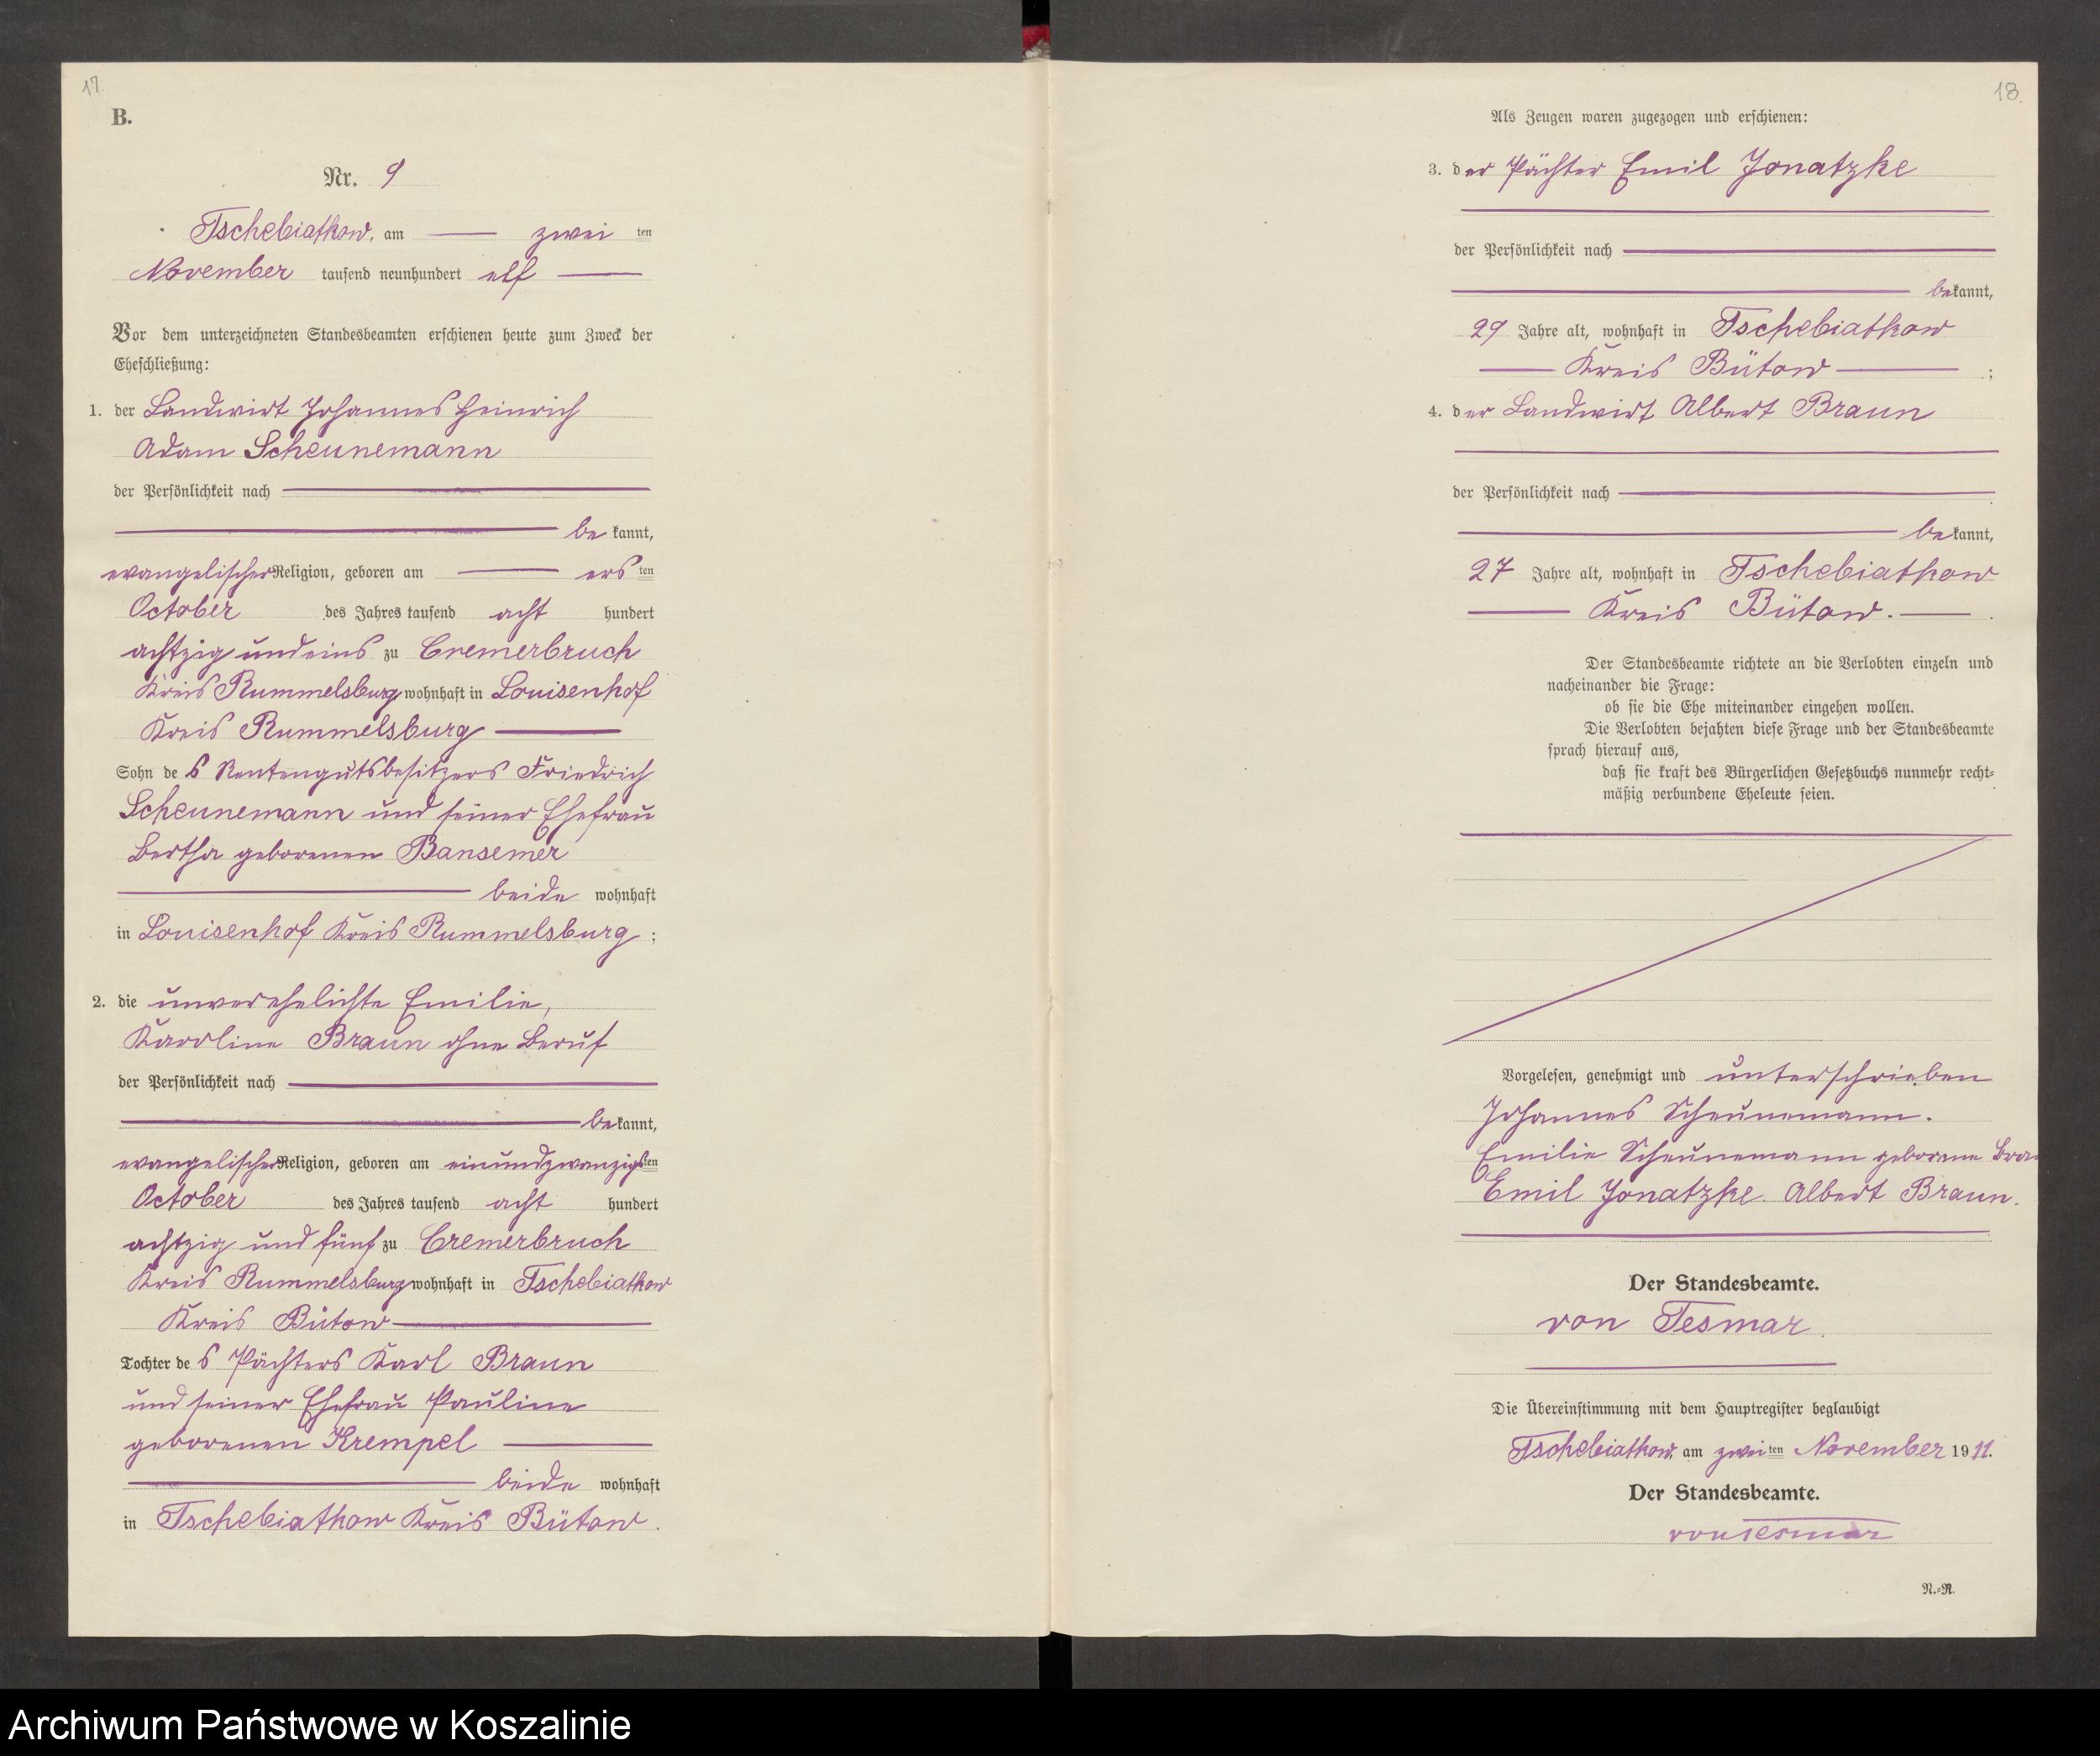 17.
B.
Nr. 9
Tschebiatkow, am zwei ten
November tausend neunhundert elf
Vor dem unterzeichneten Standesbeamten erschienen heute zum Zweck der
Eheschließung:
1. der Landwirt Johannes Heinrich
Adam Scheunemann
der Persönlichkeit nach
be kannt,
evangelischer Religion, geboren am ers ten
October des Jahres tausend acht hundert
achtzig und eins zu Cremerbruch
Kreis Rummelsburg wohnhaft in Louisenhof
Kreis Rummelsburg
Sohn de s Rentengutsbesitzers Friedrich
Scheunemann und seiner Ehefrau
Bertha geborenen Bansemer
beide wohnhaft
in Louisenhof Kreis Rummelsburg ;
2. die unverehelichte Emilie,
Karoline Braun ohne Beruf
der Persönlichkeit nach
be kannt,
evangelischer Religion, geboren am einundzwanzigs ten
October des Jahres tausend acht hundert
achtzig und fünf zu Cremerbruch
Kreis Rummelsburg wohnhaft in Tschebiatkow
Kreis Bütow
Tochter de s Pächters Karl Braun
und seiner Ehefrau Pauline
geborenen Krempel
beide wohnhaft
in Tschebiatkow Kreis Bütow.
18.
Als Zeugen waren zugezogen und erschienen:
3. d er Pächter Emil Jonatzke
der Persönlichkeit nach
be kannt,
29 Jahre alt, wohnhaft in Tschebiatkow
Kreis Bütow ;
4. d er Landwirt Albert Braun
der Persönlichkeit nach
be kannt,
27 Jahre alt, wohnhaft in Tschebiatkow
Kreis Bütow. .
Der Standesbeamte richtete an die Verlobten einzeln und
nacheinander die Frage:
ob sie die Ehe miteinander eingehen wollen.
Die Verlobten bejahten diese Frage und der Standesbeamte
sprach hierauf aus,
daß sie kraft des Bürgerlichen Gesetzbuchs nunmehr recht-
mäßig verbundene Eheleute seien.
Vorgelesen, genehmigt und unterschrieben
Johannes Scheunemann.
Emilie Scheunemann geborene Brau
Emil Jonatzke. Albert Braun.
Der Standesbeamte.
von Tesmar.
Die Übereinstimmung mit dem Hauptregister beglaubigt
Tschebiatkow, am zwei ten November 19 11.
Der Standesbeamte.
von Tesmar
N.-R.
Archiwum Państwowe w Koszalinie